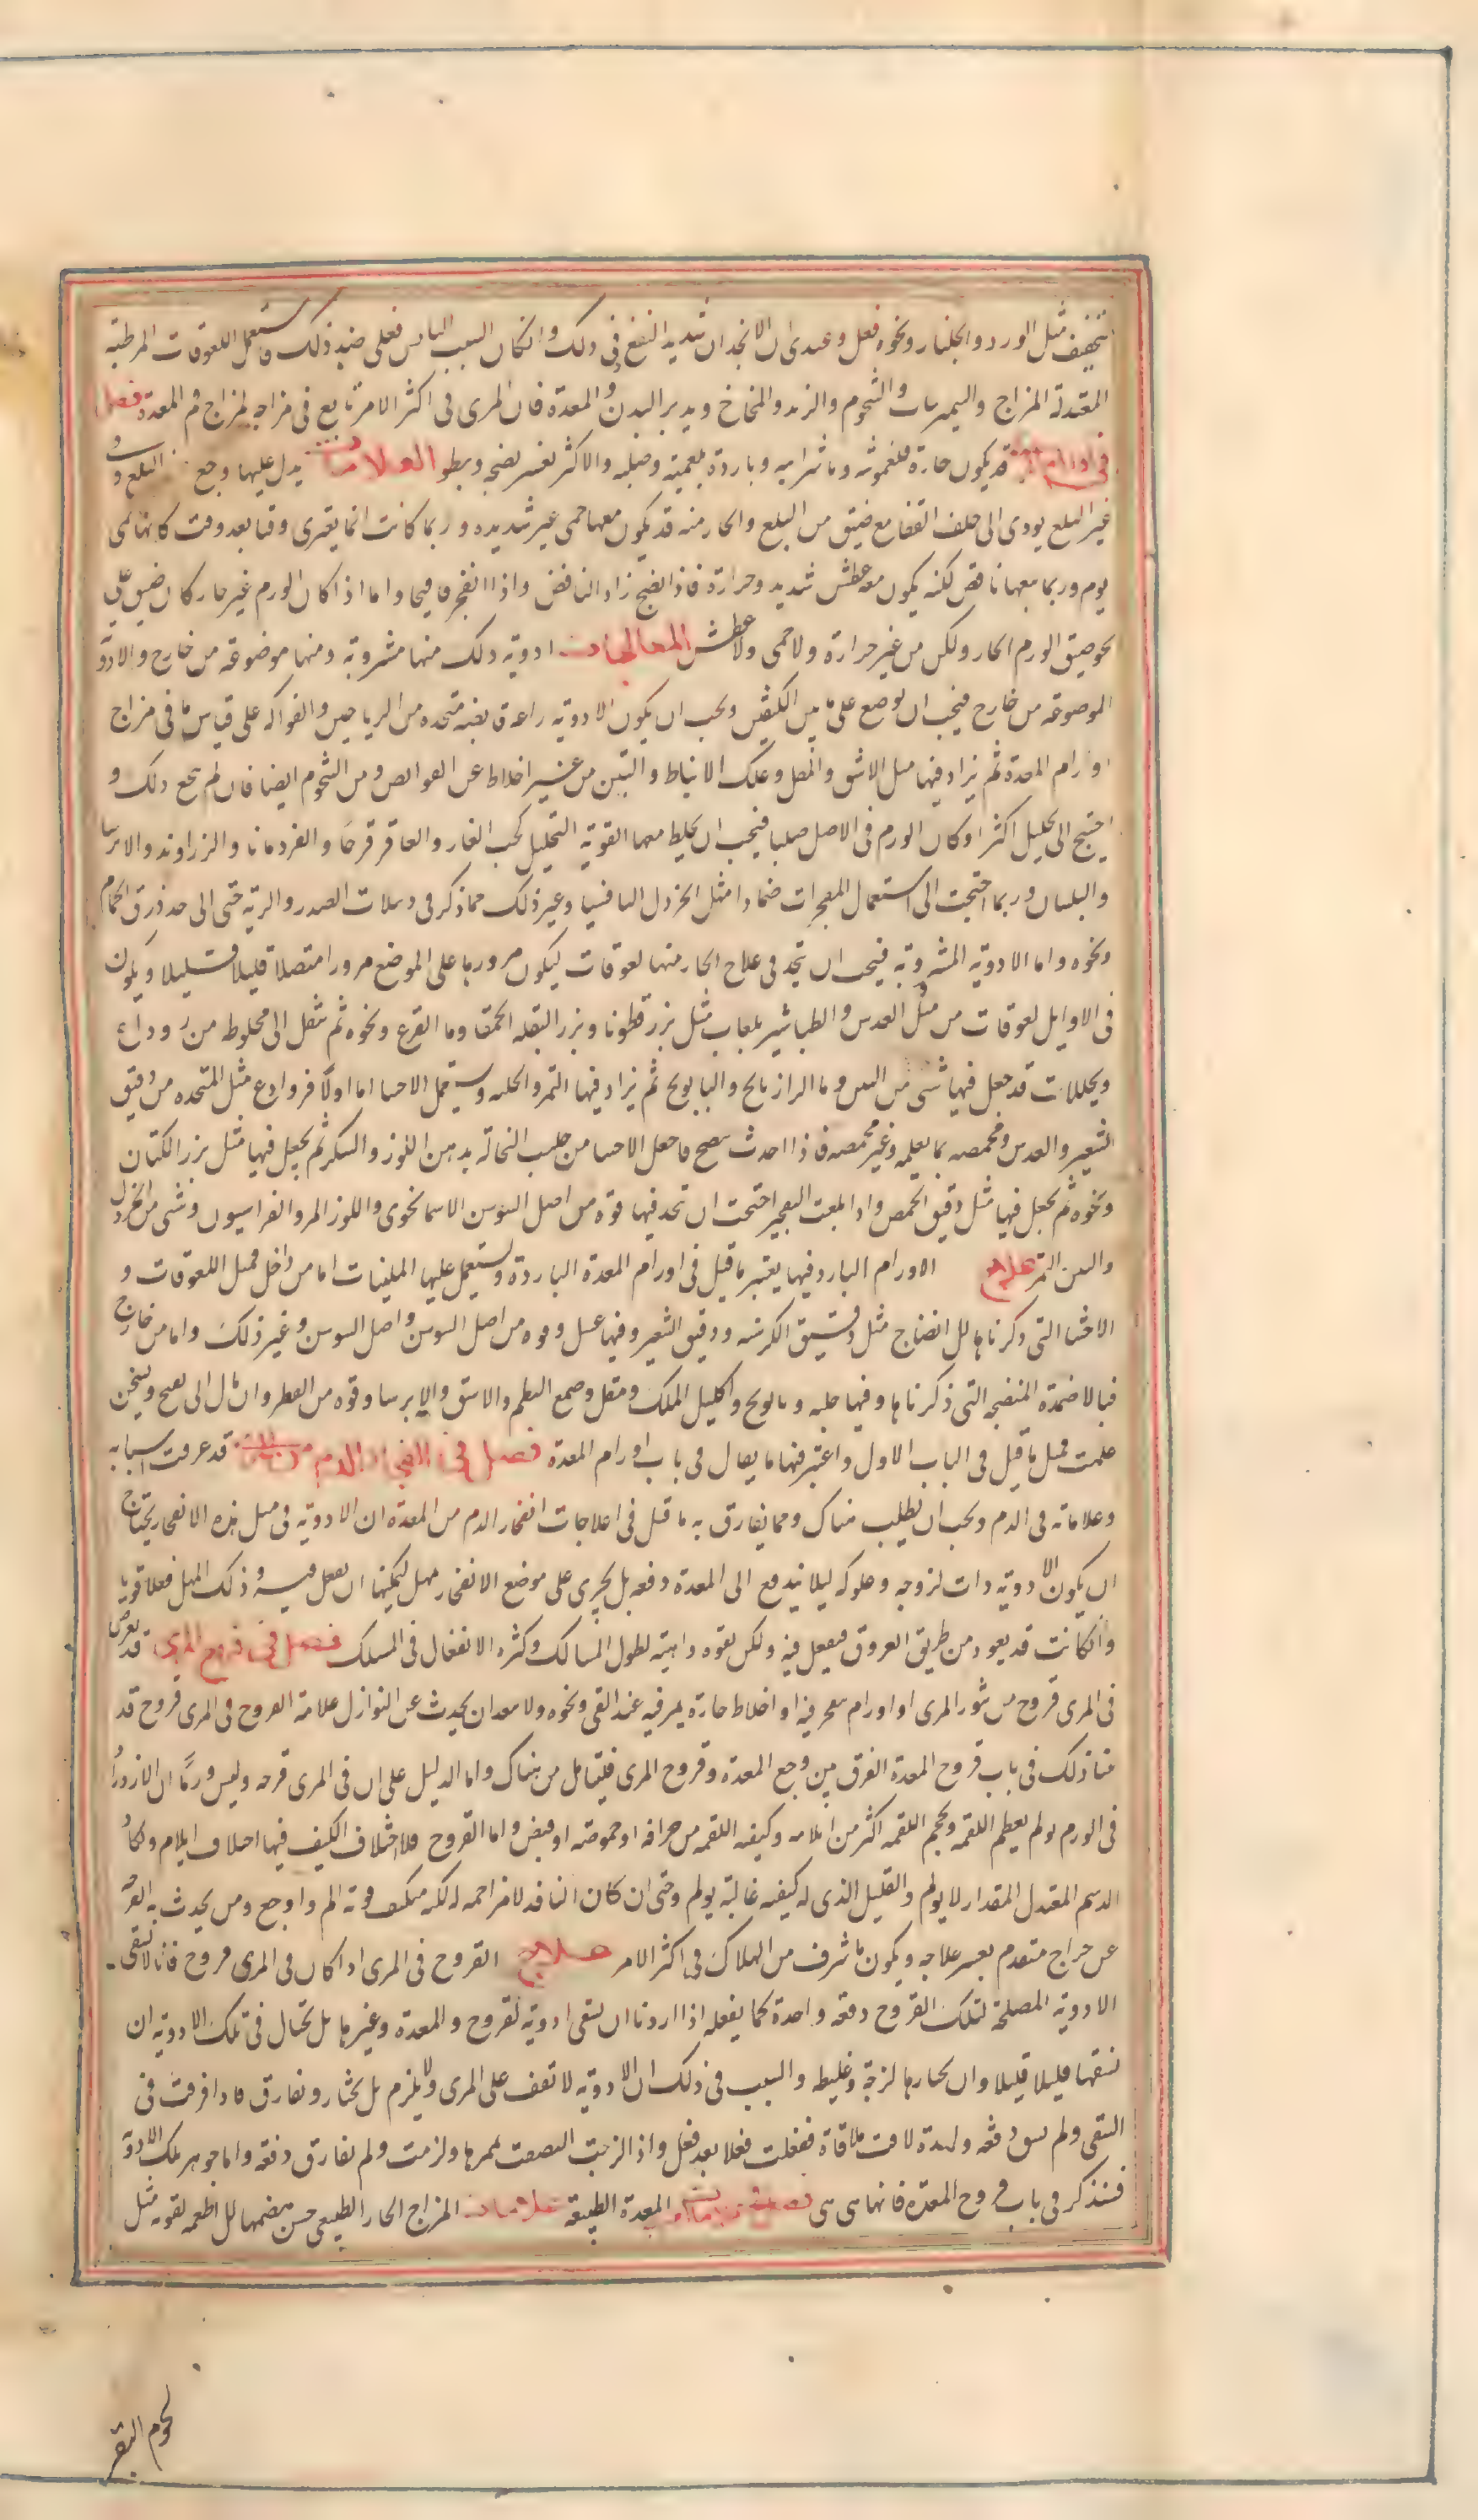 تجفيف مثل الورد والجلنار ونحوه فعل وعندى ان الانجدان شديد النفع فى ذلك وانكان السبب اليابس فعلى ضد ذلك فاستعمل اللعوقات المرطبة
المعتدلة المزاج والنيمبرشات والشحوم والزبد والمخاخ ويدبر البدن والمعدة فان المرى فى اكثر الامر تابع فى مزاجه لمزاج فم المعدة فصل
فى اورام المرى قد يكون حارة فلغمونيه وماشرايه وباردة بلغمية وصلبه والاكثر يعسر نضجه ويبطو العلامات يدل عليها وجع البلع و
غير البلع يودى الى خلف القفا مع ضيق من البلع والحار منه قد يكون معها حمى غير شديده وربما كانت انما يعترى وقتا بعد وقت كانها حمى
يوم وربما معها نافض لكنه يكون معه عطش شديد وحرارة فاذا نضج زاد النافض واذا انفجر قاء قيحا واما اذا كان الورم غير حار كان ضيق على
نحو ضيق الورم الحار ولكن من غير حرارة ولا حمى ولا عطش المعالجات ادوية ذلك منها مشروبة ومنها موضوعه من خارج والادوية
الموضوعه من خارج فيجب ان توضع على ما بين الكتفين ويجب ان يكون الادوية رادعة بعيه متخده من الرياحين والفواكه على قياس ما فى مزاج
اورام المعدة ثم يزاد فيها مثل الاشق والمقل وعلك الانباط والتين من غير اخلاط عن القوابض ومن الشحوم ايضا فان لم ينجع ذلك و
احتيج الى تحليل اكثر او كان الورم فى الاصل صلبا فيجب ان يخلط معها القوية التحليل كحب الغار والعاقر قرحا والقردمانا والزراوند والايرسا
والبلسان وربما احتجت الى استعمال المفجرات ضمادا مثل الخردل الثافسيا وغير ذلك مما ذكر فى دبيلات الصدر والرية حتى الى حد ذرق الحمام
ونحوه واما الادوية المشروبة فيجب ان تتخذ فى علاج الحار منها لعوقات ليكون مرورها على الموضع مرورا متصلا قليلا قليلا ويكون
فى الاوايل لعوقات من مثل العدس والطباشير بلعاب مثل بزر قطونا وبزر البقلة الحمقا وماء القرع ونحوه ثم تنقل الى مخلوط من روادع
ومحللات قد جعل فيها شى من التين وما الرازيانج والبابونج ثم يزاد فيها التمر والحلبه ويستعمل الاحسا اما اولا فروادع مثل المتخده من دقيق
الشعير والعدس ومحمصه بما يعليه وغير محمصه فاذا احدث ينضج فاجعل الاحسا من حليب النخالة بدهن اللوز والسكر ثم يجعل فيها مثل بزر الكتان
ونحوه ثم يجعل فيها مثل دقيق الحمص واذا بلغت التفجير احتجت ان تجد فيها قوة من اصل السوسن الاسمانجونى واللوز المر والفراسيون وشى من الخردل
والتين التمر علاج الاورام البارد فيها يعتبر ما قيل فى اورام المعدة الباردة ويستعمل عليها الملينات اما من داخل فمثل اللعوقات و
الاحشا التى ذكرناها للانضاج مثل دقيق الكرسنه ودقيق الشعير وفيها عسل وقوه من اصل السوسن واصل السوس وغير ذلك واما من خارج
فبالاضمدة المنضجه التى ذكرناها وفيها حلبه وبابونج واكليل الملك ومقل وصمغ البطم والاشق والايرسا وقوه من العطر وان مال الى نضج وتسخن
علمت مثل ما قيل فى الباب الاول واعتبر فيها ما يقال فى باب اورام المعدة فصل فى انفجار الدم من المرى قد عرفت اسبابه
وعلاماته فى الدم ويجب ان يطلب هناك ومما يفارق به ما قيل فى اعلاجات انفجار الدم من المعدة ان الادوية فى مثل هذه الانفجار يحتاج
ان يكون الادوية ذات لزوجه وعلوكه ليلا يندفع الى المعدة دفعه بل يجرى على موضع الانفجار مهل ليمكنها ان يفعل فيه فى ذلك المهل فعلا قويا
وانكانت قد يعود من طريق العروق فيفعل فيه ولكن بقوه واهية لطول المسالك وكثره الانفعال فى المسلك فصل فى قروح المرى قد يعرض
فى المرى قروح من بثور المرى او اورام ينفجر فيه او اخلاط حارة يمر فيه عند القى ونحوه ولا يبعد ان يحدث عن النوازل علامة القروح فى المرى قروح قد
قلنا ذلك فى باب قروح المعدة الفرق بين وجع المعدة وقروح المرى فليتامل من هناك واما الدليل على ان فى المرى قرحه وليس ورما ان الازدراد
فى الورم يولم بعظم اللقمه وبحجم اللقمه اكثر من ايلامه وكيفيه اللقمه من حرافه او حموضه او قبض واما القروح فلاختلاف الكيف فيها اختلاف ايلام ولكان
الدسم المعتدل المقدار لا يولم والقليل الذى له كيفيه غالبة يولم وحتى ان كان النافذ لا مزاحمه له لكنه متكيف فوته الم واوجع ومن يحدث به القرحه
عن خراج متقدم يعسر علاجه ويكون ما شرف من الهلاك فى اكثر الامر علاج القروح فى المرى اذا كان فى المرى قروح فانا لا نسقى
الادوية المصلحة لتلك القروح دفعه واحدة كما يفعله اذا اردنا ان نسقى ادوية لقروح والمعدة وغيرها بل نحتال فى تلك الادوية ان
نسقها قليلا قليلا وان نختارها لزجة وغليظه والسبب فى ذلك ان الادوية لا تقف على المرى ولا يلزم بل تجتاز وتفارق فاذا فرقت فى
السقى ولم يسق دفعه واحدة لاقت ملاقاة ففعلت فعلا بعد فعل واذا لزجت التصقت بممرها ولزمت ولم تفارق دفعه واما جوهر تلك الادوية
فسنذكر فى باب قروح المعدة فانها هى هى فصل فى علامات المعدة الطبيعة علامات المزاج الحار الطبيعى حسن هضمها للاطعمه القويه مثل
لحوم البقر